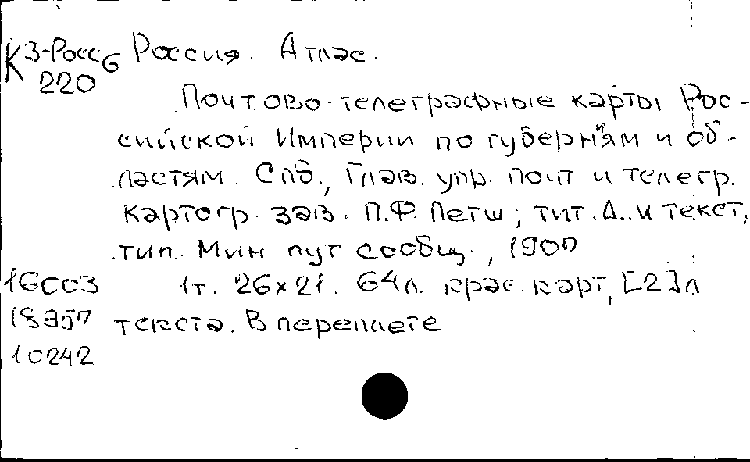 К3-Росс6 Россия. Атлас.
220
Почтово-телеграфные карты Рос-
сийской Империи по губерниям и об-
ластям. Спб., Глав. упр. почт и телегр.
картогр. зав. П.Ф. Петш; тит. л. и текст,
тип. Мин. пут сообщ., 1900
16003 1т. 26×21. 64л. крас. карт, [2]л
18357 текста. В переплете
10242